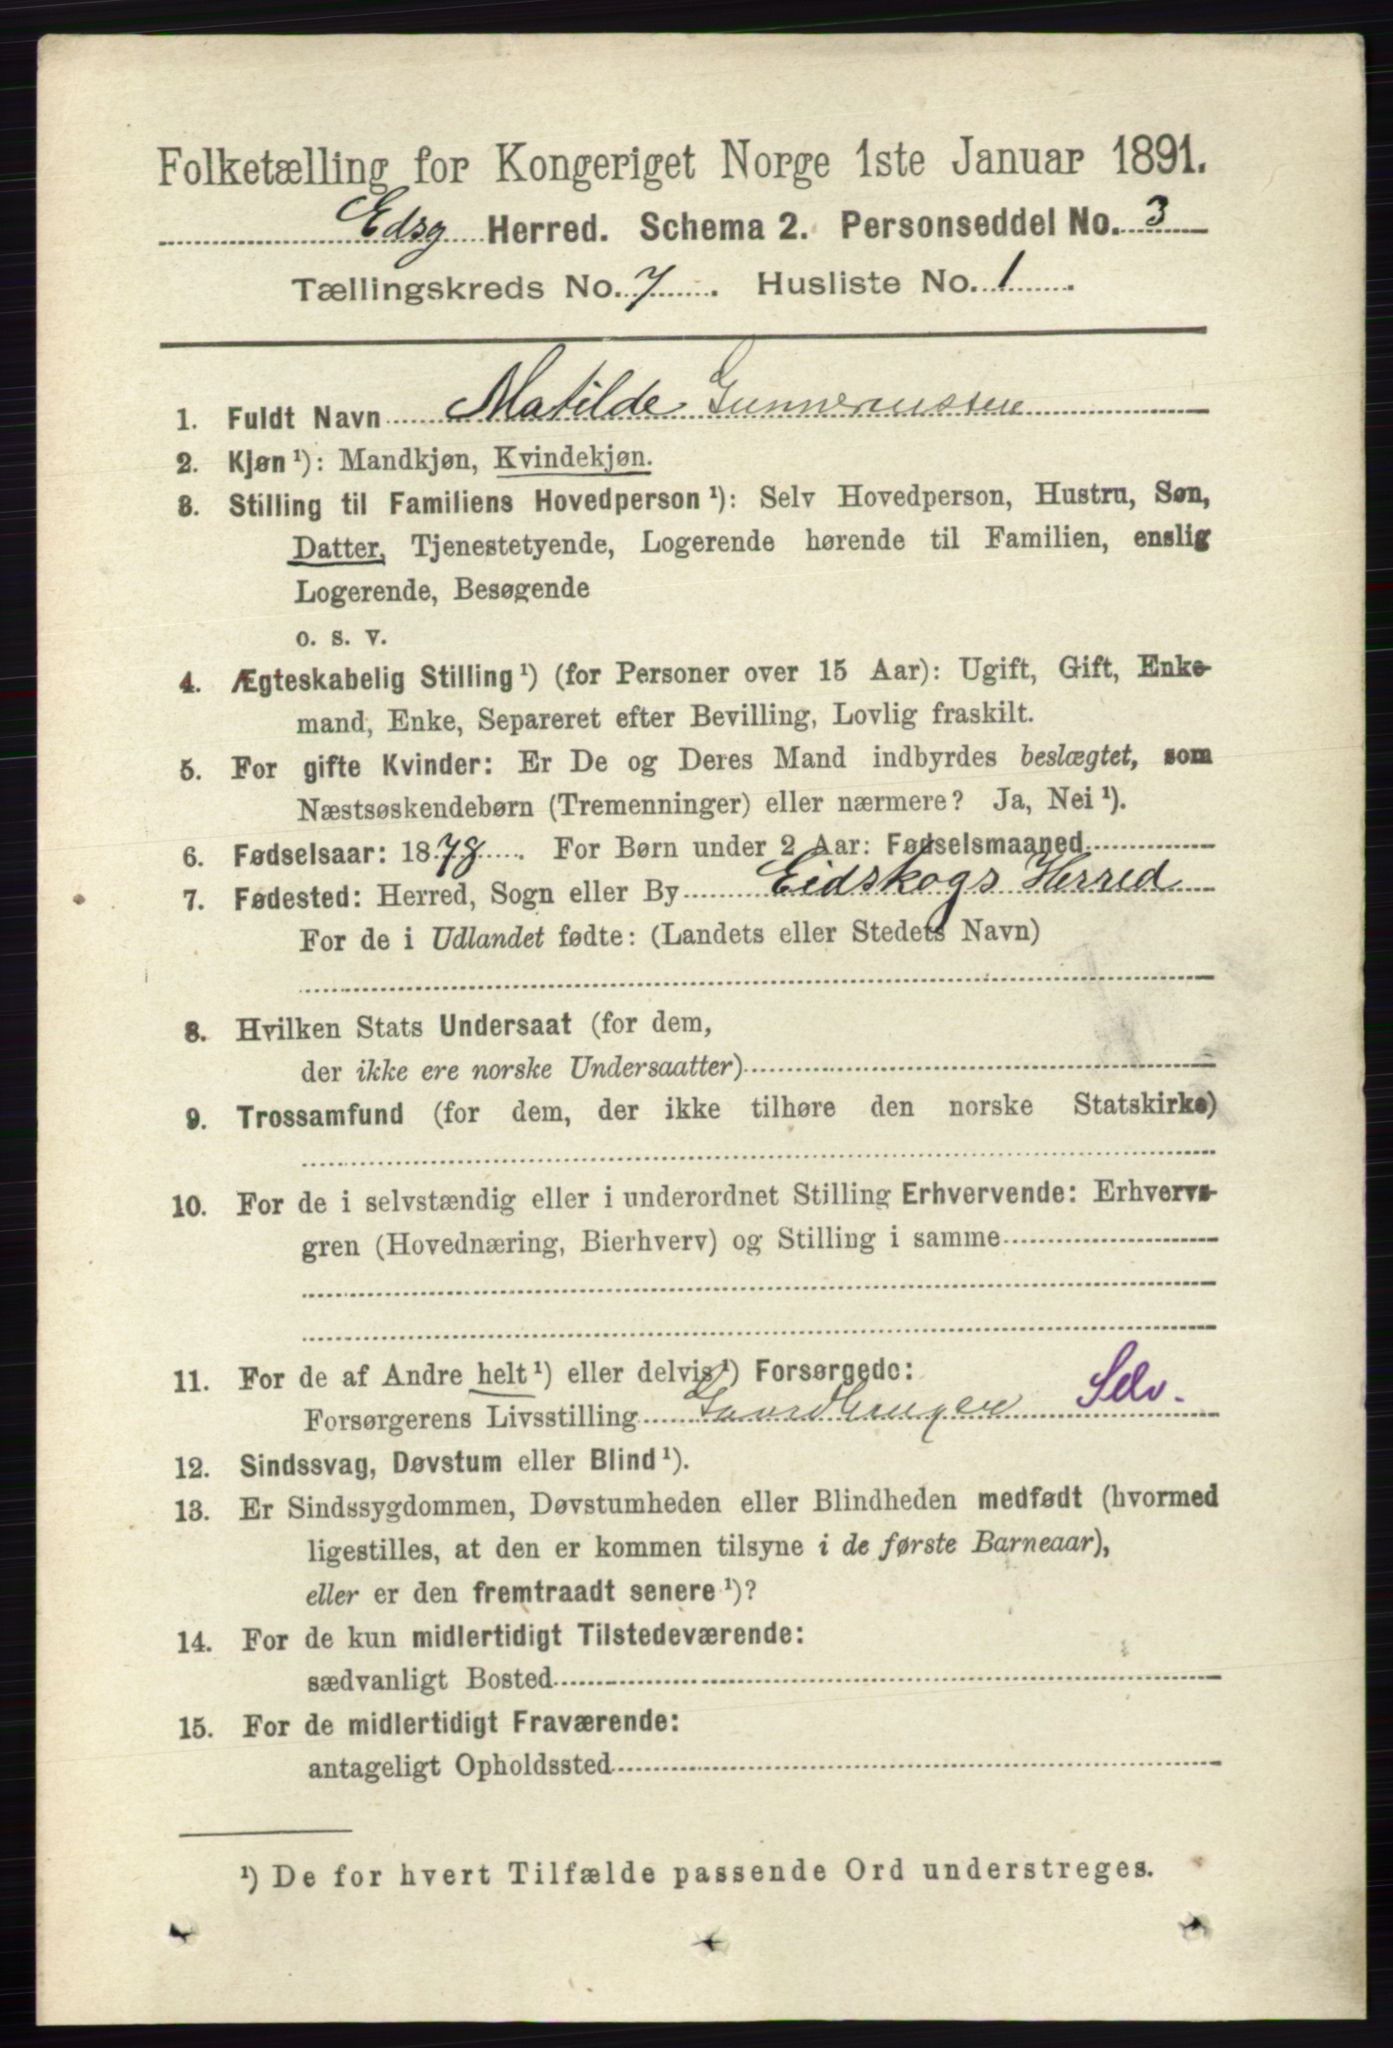 Folketælling for Kongeriget Norge 1ste Januar 1891.
Edsg Herred. Schema 2. Personseddel No. 3
Tællingskreds No. 7. Husliste No. 1.
1. Fuldt Navn Matilde Gunnerussen
2. Kjøn ¹): Mandkjøn, Kvindekjøn.
3. Stilling til Familiens Hovedperson ¹): Selv Hovedperson, Hustru, Søn,
Datter, Tjenestetyende, Logerende hørende til Familien, enslig
Logerende, Besøgende
o. s. v.
4. Ægteskabelig Stilling ¹) (for Personer over 15 Aar): Ugift, Gift, Enke-
mand, Enke, Separeret efter Bevilling, Lovlig fraskilt.
5. For gifte Kvinder: Er De og Deres Mand indbyrdes beslægtet, som
Næstsøskendebørn (Tremenninger) eller nærmere? Ja, Nei ¹).
6. Fødselsaar: 1878. For Børn under 2 Aar: Fødselsmaaned
7. Fødested: Herred, Sogn eller By Eidskogs Herred
For de i Udlandet fødte: (Landets eller Stedets Navn)
8. Hvilken Stats Undersaat (for dem,
der ikke ere norske Undersaatter)
9. Trossamfund (for dem, der ikke tilhøre den norske Statskirke)
10. For de i selvstændig eller i underordnet Stilling Erhvervende: Erhvervs-
gren (Hovednæring, Bierhverv) og Stilling i samme
11. For de af Andre helt ¹) eller delvis ¹) Forsørgede:
Forsørgerens Livsstilling Gaardbruger Selv.
12. Sindssvag, Døvstum eller Blind ¹).
13. Er Sindssygdommen, Døvstumheden eller Blindheden medfødt (hvormed
ligestilles, at den er kommen tilsyne i de første Barneaar),
eller er den fremtraadt senere ¹)?
14. For de kun midlertidigt Tilstedeværende:
sædvanligt Bosted
15. For de midlertidigt Fraværende:
antageligt Opholdssted
¹) De for hvert Tilfælde passende Ord understreges.